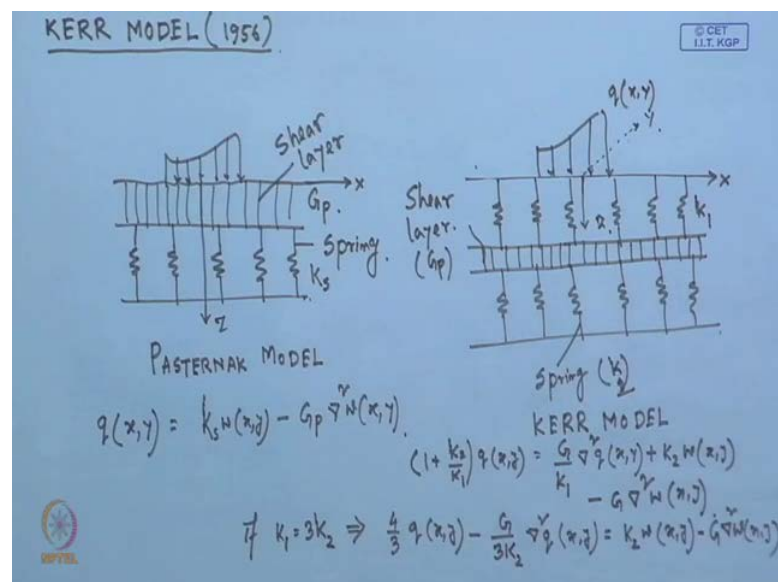 KERR MODEL (1956)
© CET
I.I.T. KGP
Shear
layer
x
Gp.
Spring.
Ks
z
PASTERNAK MODEL
q(x,y) = ksw(x,y) - Gp ∇²w(x,y).
q(x,y)
y.
x
z.
k1
Shear
layer.
(Gp)
Spring (k2)
KERR MODEL
(1 + k2/k1) q(x,y) = G/k1 ∇²q(x,y) + k2 w(x,y)
- G ∇²w(x,y)
If k1 = 3k2 ⇒ 4/3 q(x,y) - G/3k2 ∇²q(x,y) = k2 w(x,y) - G∇²w(x,y)
NPTEL